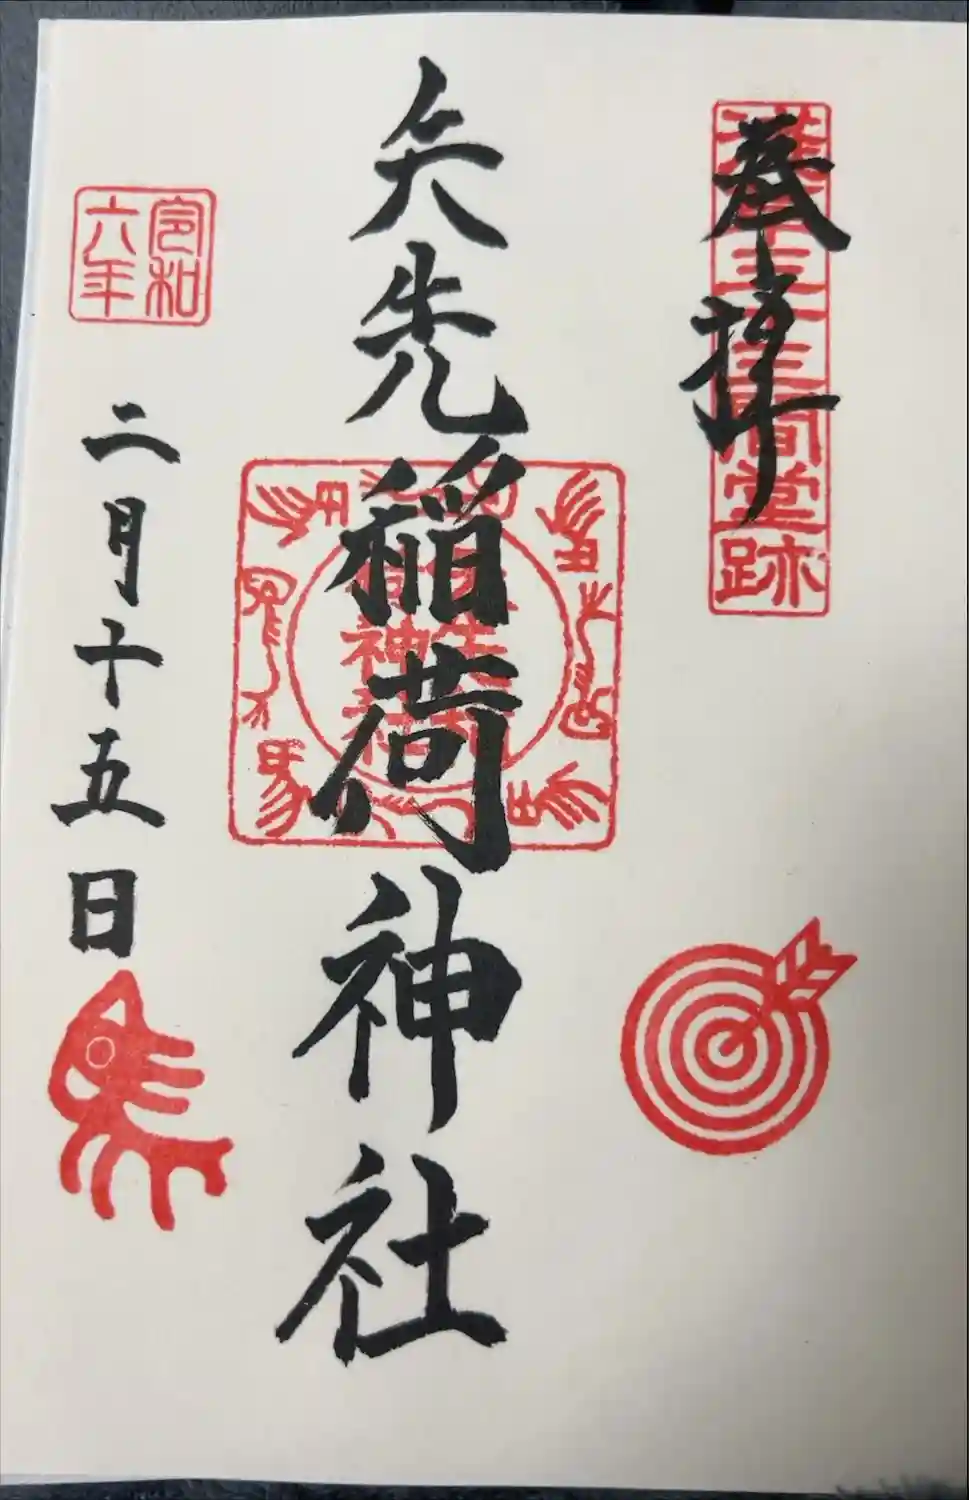 奉拝
浅草三十三間堂跡
矢先稲荷神社
令和
六年
二月十五日